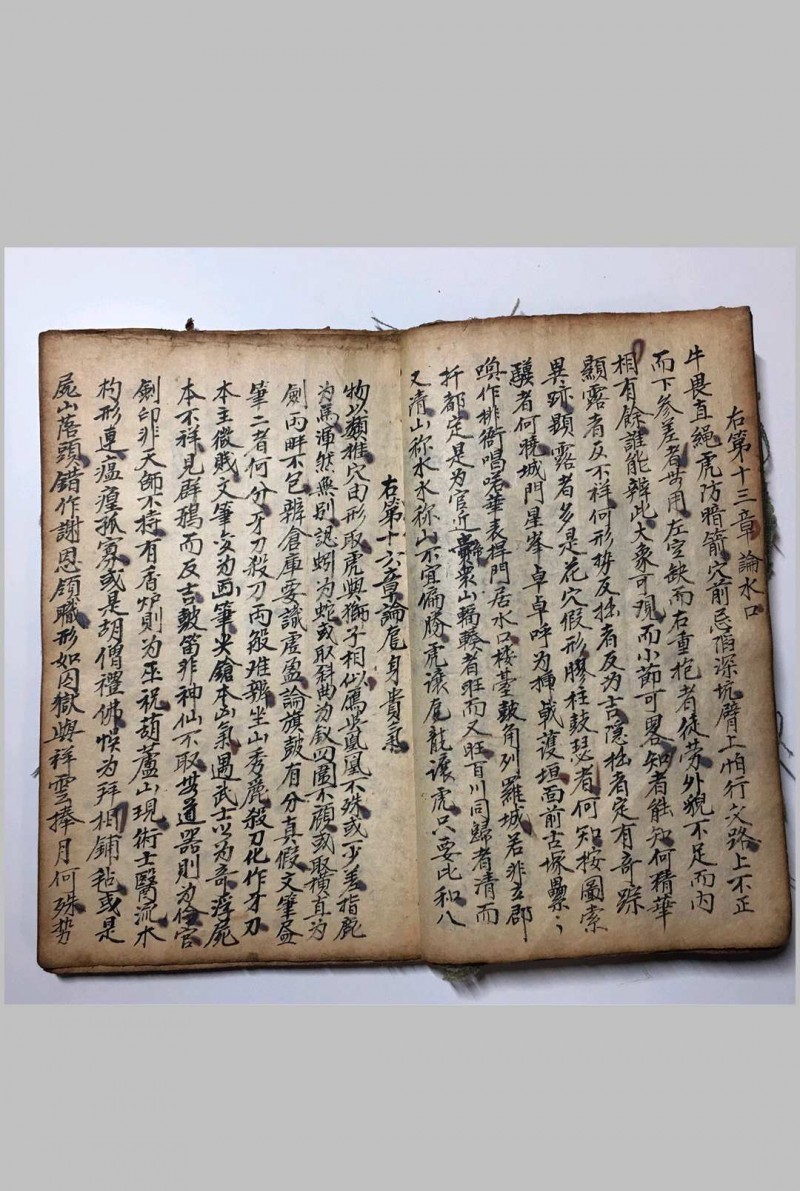 右第十三章論水口
牛畏直繩虎防暗箭穴前忌陷深坑臂上怕行交路上不正
而下參差者無用左空缺而右重抱者徒劳外貌不足而内
相有餘誰能辨此大象可观而小節可畧知者能知何精華
顯露者反不祥何形势反拙者反为吉隱拙者定有奇踪
異跡顯露者多是花穴假形膠柱鼓瑟者何知按圖索
驥者何曉城門星峯卓卓呼为揷戟護垣面前古塚纍〻
喚作排衙唱喏華表捍門居水口楼䑓鼓角列羅城若非立郡
扦都定是为官近衆山輻輳者旺而又旺百川同歸者清而
又清山称水水称山不宜偏勝虎讓龍龍讓虎只要比和八
右第十六章論龍身貴氣
物以類推穴由形取虎與獅子相似鴈與凰凰不殊或少差指鹿
为馬渾然無别認蚓为蛇或取斜曲为釵四圍不顧或取横直为
劍両畔不包辨倉庫要識虚盈論旗鼓有分真假文筆㿝
筆二者何分牙刀殺刀両般难辨坐山秀麗殺刀化作牙刀
本主微賤文筆変为画筆尖鎗本山氣遇武士以为奇浮屍
本不祥見群鴉而反吉鼓笛非神仙不取無道器則为伶官
劍印非天師不持有香炉則为巫祝葫蘆山現術士醫流水
杓形連瘟㾮孤寡或是胡僧禮佛悮为拜相鋪毡或是
屍山落頭錯作謝恩領職形如囚獄與祥雲捧月何殊势